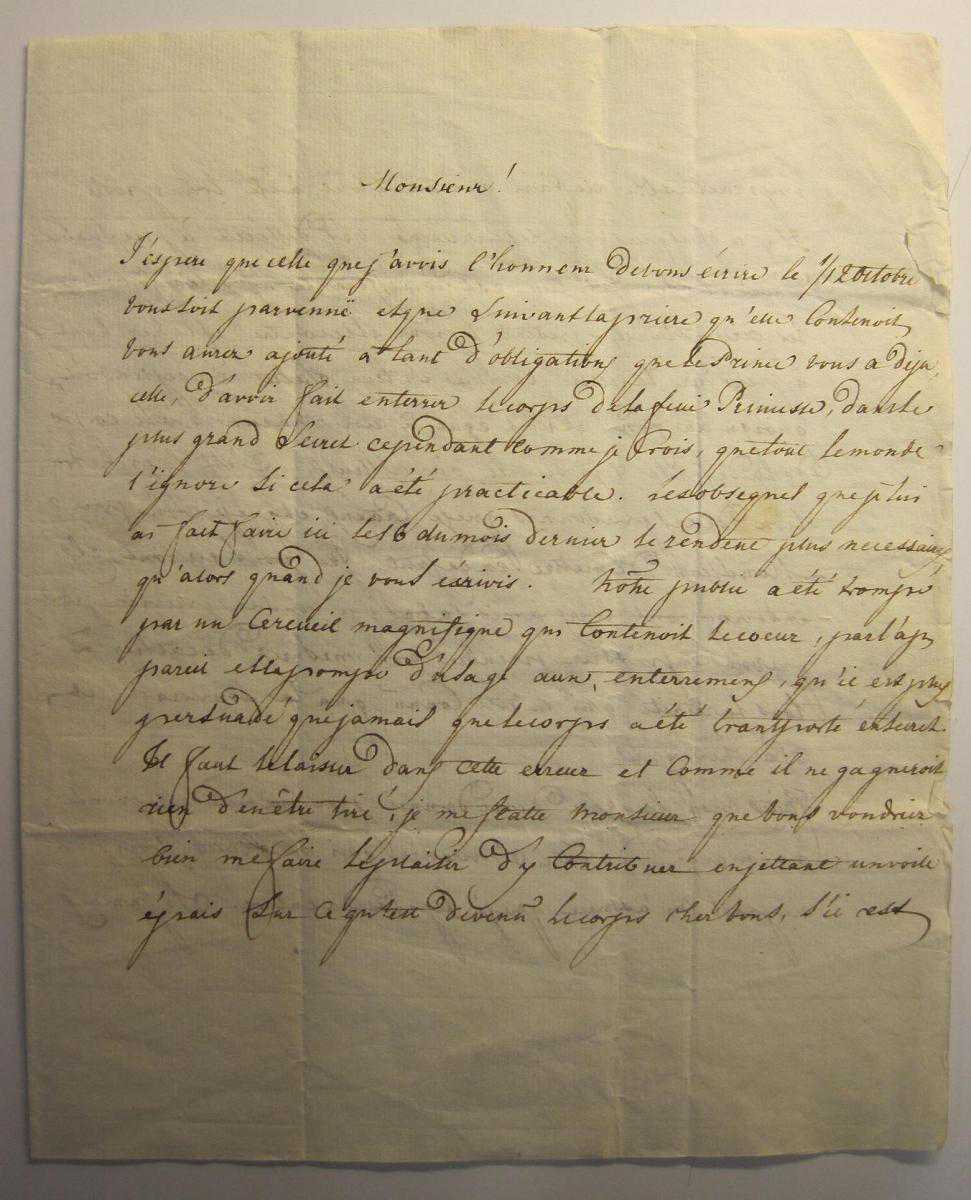 Monsieur!
J'éspere que celle que j'avois l'honneur de vous écrire le 1/12 Octobre
vous soit parvenuë et que suivant la priere qu'elle contenoit,
vous aurez ajouté a tant d'obligations que le Prince vous a deja,
celle, d'avoir fait enterrer le corps de la feue Princesse, dans le
plus grand secret cependant comme je crois, que tout le monde
l'ignore si cela a été practicable. Les obseques que je lui
ai fait faire ici le 16 du mois dernier le rendent plus necessaire
qu'alors quand je vous écrivis. Notre public a été trompé
par un Cercueil magnifique qui contenoit le coeur, par l'ap
pareil et la pompe d'usage aux enterremens, qu'il est plus
persuadé que jamais que le corps a été transporté en secret.
Il faut le laisser dans cette erreur et comme il ne gagneroit
rien d'en être tiré, je me flatte Monsieur que vous voudriez
bien me faire le plaisir d'y contribuer en jettant un voile
épais sur ce qu'est devenu le corps chez vous, s'il est